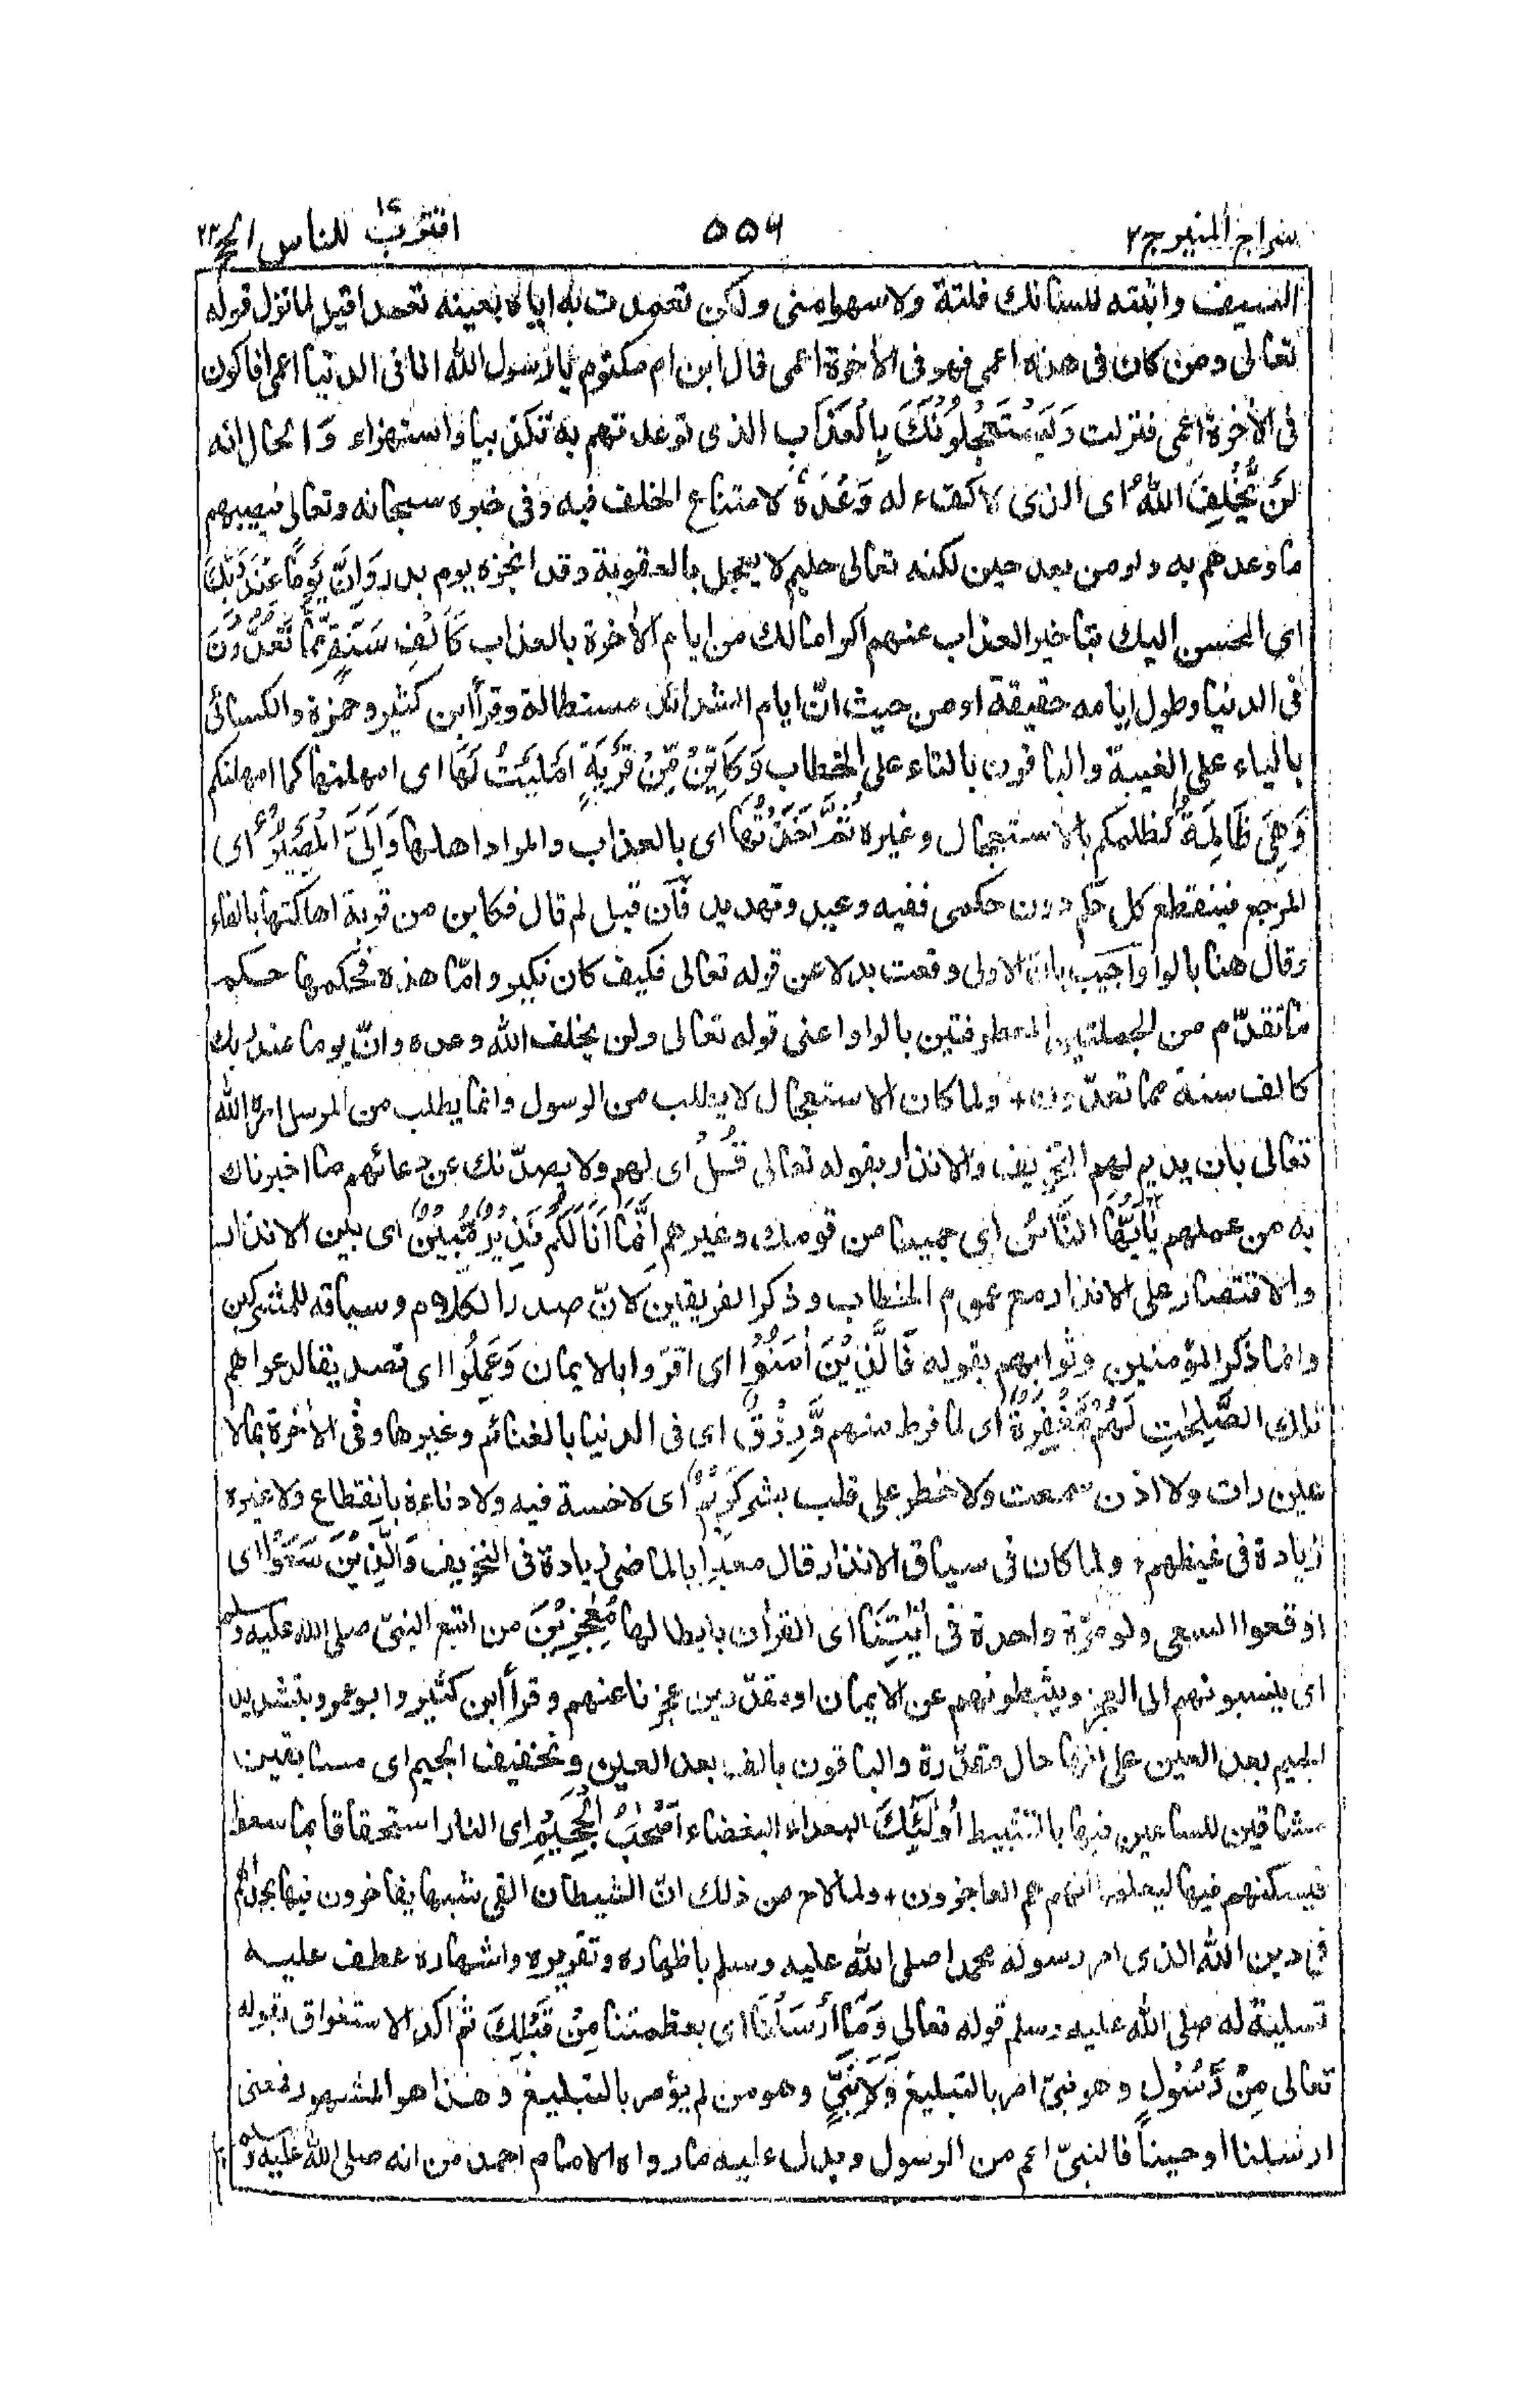 سراج المنير ج ٢
٥٥٦
اقترب للناس ١٧ الحج ٢٣
السيف واثبته للسانك فلتة ولا سهوا منى ولكن تعمدت به اياه بعينه تعمدا قيل لما نزل قوله
تعالى ومن كان فى هذه اعمى فهو فى الاخرة اعمى قال ابن ام مكتوم يا رسول الله انا فى الدنيا اعمى افاكون
فى الاخرة اعمى فنزلت وَيَسْتَعْجِلُوْنَكَ بِالْعَذَابِ الذى توعدتهم به تكذيبا واستهزاء وَ الحال انه
لَنْ يُّخْلِفَ اللهُ اى الذى لا كفء له وَعْدَهٗ لامتناع الخلف فيه وفى خبره سبحانه وتعالى فيصيبهم
ما وعدهم به ولو من بعد حين لكنه تعالى حليم لا يعجل بالعقوبة وقد انجزه يوم بدر وَاِنَّ يَوْمًا عِنْدَ رَبِّكَ
اى المحسن اليك بتاخير العذاب عنهم اكراما لك من ايام الاخرة بالعذاب كَاَلْفِ سَنَةٍ مِّمَّا تَعُدُّوْنَ
فى الدنيا وطول ايامه حقيقة او من حيث انّ ايام الشدائد مستطالة وقرأ ابن كثير وحمزة والكسائى
بالياء على الغيبة والباقون بالتاء على الخطاب وَكَاَيِّنْ مِّنْ قَرْيَةٍ اَمْلَيْتُ لَهَا اى امهلتها كما امهلتكم
وَهِىَ ظَالِمَةٌ كظلمكم بالاستعجال وغيره ثُمَّ اَخَذْتُهَا اى بالعذاب والمراد اهلها وَاِلَىَّ الْمَصِيْرُ اى
المرجع فينقطع كل حكم دون حكمى ففيه وعيد وتهديد فان قيل لم قال فكاين من قرية اهلكتها بالفاء
وقال هنا بالواو اجيب بان الاولى وقعت بدلا عن قوله تعالى فكيف كان نكير وامّا هذه فحكمها حكم
ما تقدّم من الجملتين المعطوفتين بالواو اعنى قوله تعالى ولن يخلف الله وعده وانّ يوما عند ربك
كالف سنة مما تعدّون + ولما كان الاستعجال لا يطلب من الرسول وانما يطلب من المرسل امره الله
تعالى بان يديم لهم التخويف والانذار بقوله تعالى قُلْ اى لهم ولا يصدّنك عن دعائهم ما اخبرناك
به من عملهم يٰٓاَيُّهَا النَّاسُ اى جميعا من قومك وغيرهم اِنَّمَا اَنَا لَكُمْ نَذِيْرٌ مُّبِيْنٌ اى بين الانذار
والاقتصار على الانذار مع عموم الخطاب وذكر الفريقين لانّ صدر الكلام وسياقه للمشركين
وانما ذكر المؤمنين وثوابهم بقوله فَالَّذِيْنَ اٰمَنُوْا اى اقرّوا بالايمان وَعَمِلُوا اى تصديقا لدعواهم
تلك الصّٰلِحٰتِ لَهُمْ مَّغْفِرَةٌ اى لما فرط منهم وَّرِزْقٌ اى فى الدنيا بالغنائم وغيرها وفى الاخرة بما لا
عين رات ولا اذن سمعت ولا خطر على قلب بشر كَرِيْمٌ اى لا خسة فيه ولا دناءة بانقطاع ولا غيره
زيادة فى غيظهم + ولما كان فى سياق الانذار قال معبرا بالماضى زيادة فى التخويف وَالَّذِيْنَ سَعَوْا اى
اوقعوا السعى ولو مرّة واحدة فى اٰيٰتِنَا اى القرأن بابطالها مُعٰجِزِيْنَ من اتبع النبىّ صلى الله عليه وسلم
اى ينسبونهم الى العجز ويثبطونهم عن الايمان او مقدّرين عجزنا عنهم وقرأ ابن كثير وابو عمرو بتشديد
الجيم بعد العين على انها حال مقدّرة والباقون بالف بعد العين وتخفيف الجيم اى مسابقين
مشاقين للساعين فيها بالتثبيط اُولٰٓئِكَ البعداء البغضاء اَصْحٰبُ الْجَحِيْمِ اى النار استحقاقا بما سعوا
فيسكنهم فيها ليعلموا انهم هم العاجزون + ولما لاح من ذلك انّ الشيطان القى شبها يفاخرون فيها بجدالهم
فى دين الله الذى امر رسوله محمدا صلى الله عليه وسلم باظهاره وتقريره واشهاره عطف عليه
تسلية له صلى الله عليه وسلم قوله تعالى وَمَا اَرْسَلْنَا اى بعظمتنا مِنْ قَبْلِكَ ثم اكد الاستغراق بقوله
تعالى مِنْ رَّسُوْلٍ وهو نبىّ امر بالتبليغ وَّلَا نَبِىٍّ وهو من لم يؤمر بالتبليغ وهذا هو المشهور فمعنى
ارسلنا اوحينا فالنبىّ اعم من الرسول ويدل عليه ما رواه الامام احمد من انه صلى الله عليه وسلم